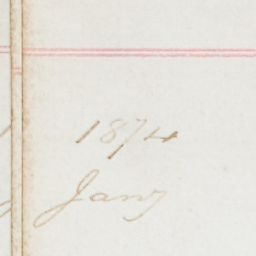 1874
Jany